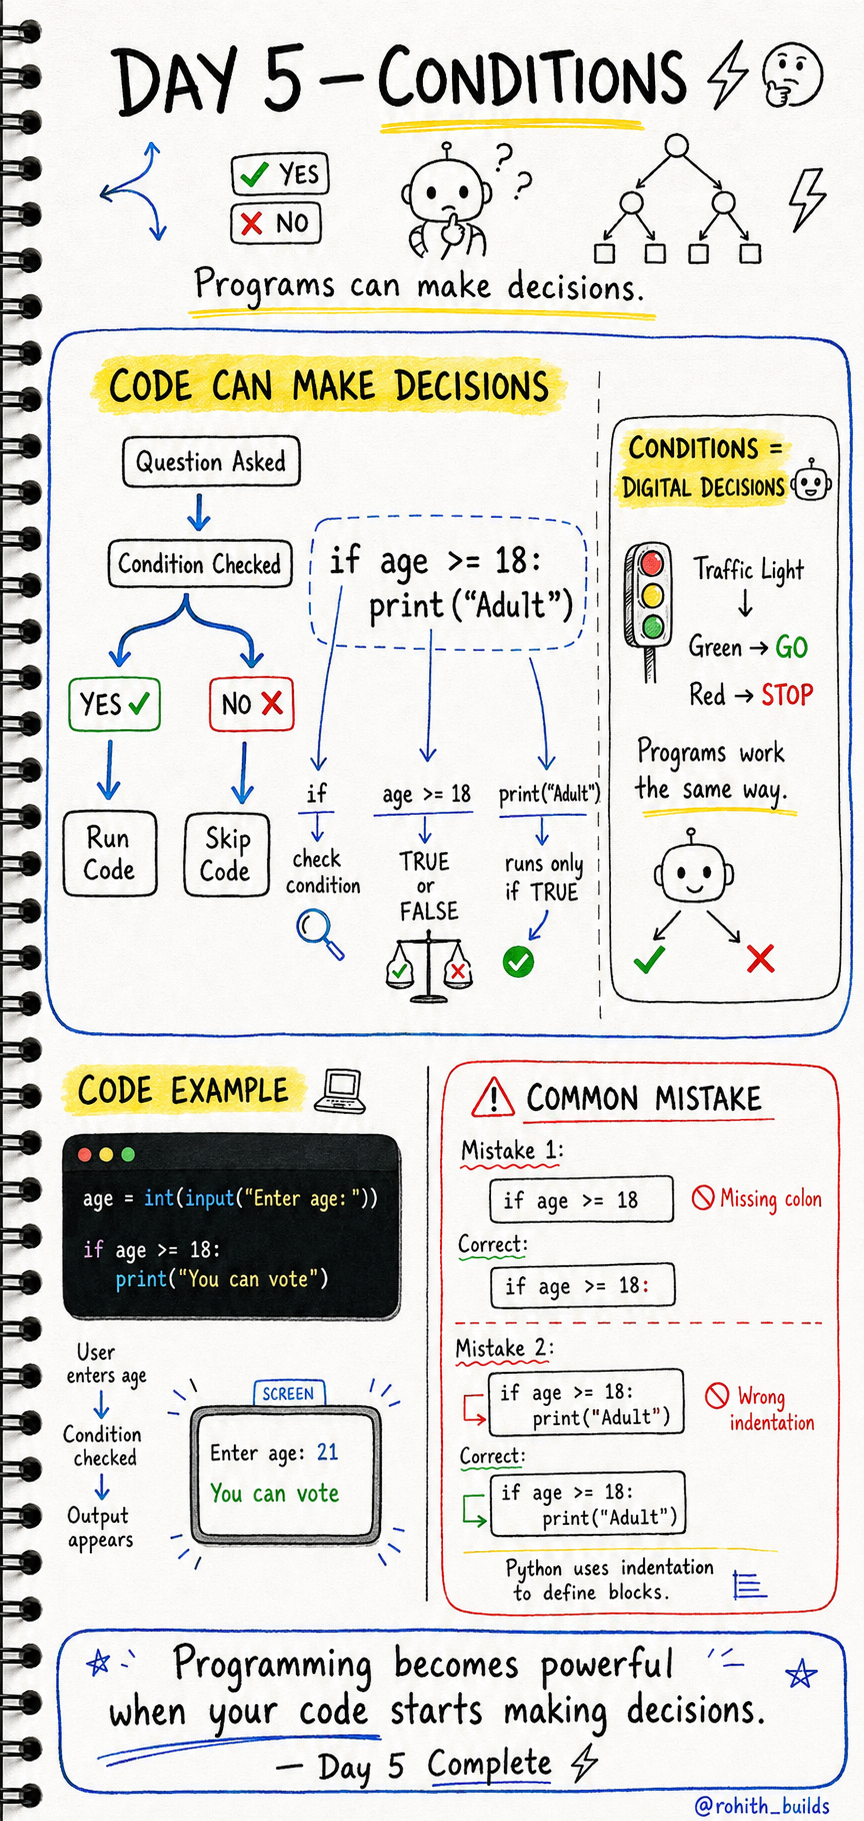 DAY 5 – CONDITIONS
✓ YES
✗ NO
? ?
Programs can make decisions.
CODE CAN MAKE DECISIONS
Question Asked
Condition Checked
YES ✓
NO ✗
Run
Code
Skip
Code
if age >= 18:
print(“Adult”)
if
check
condition
age >= 18
TRUE
or
FALSE
print(“Adult”)
runs only
if TRUE
CONDITIONS =
DIGITAL DECISIONS
Traffic Light
↓
Green → GO
Red → STOP
Programs work
the same way.
CODE EXAMPLE
age = int(input(“Enter age: ”))
if age >= 18:
print(“You can vote”)
User
enters age
Condition
checked
Output
appears
SCREEN
Enter age: 21
You can vote
! COMMON MISTAKE
Mistake 1:
if age >= 18
Missing colon
Correct:
if age >= 18:
Mistake 2:
if age >= 18:
print("Adult")
Wrong
indentation
Correct:
if age >= 18:
print("Adult")
Python uses indentation
to define blocks.
Programming becomes powerful
when your code starts making decisions.
— Day 5 Complete
@rohith_builds